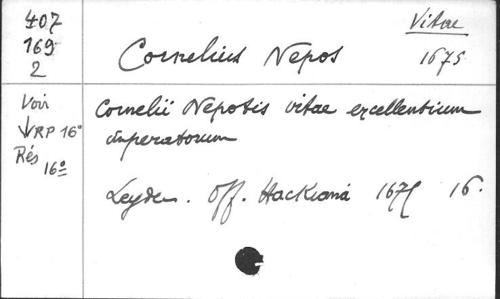 407
169
2
Vitae
Cornelius Nepos
1675
Voir
↓ RP 16°
Rés
16°
Cornelii Nepotis vitae excellentium
imperatorum
Leyden. Off. Hackiana 1675 16.